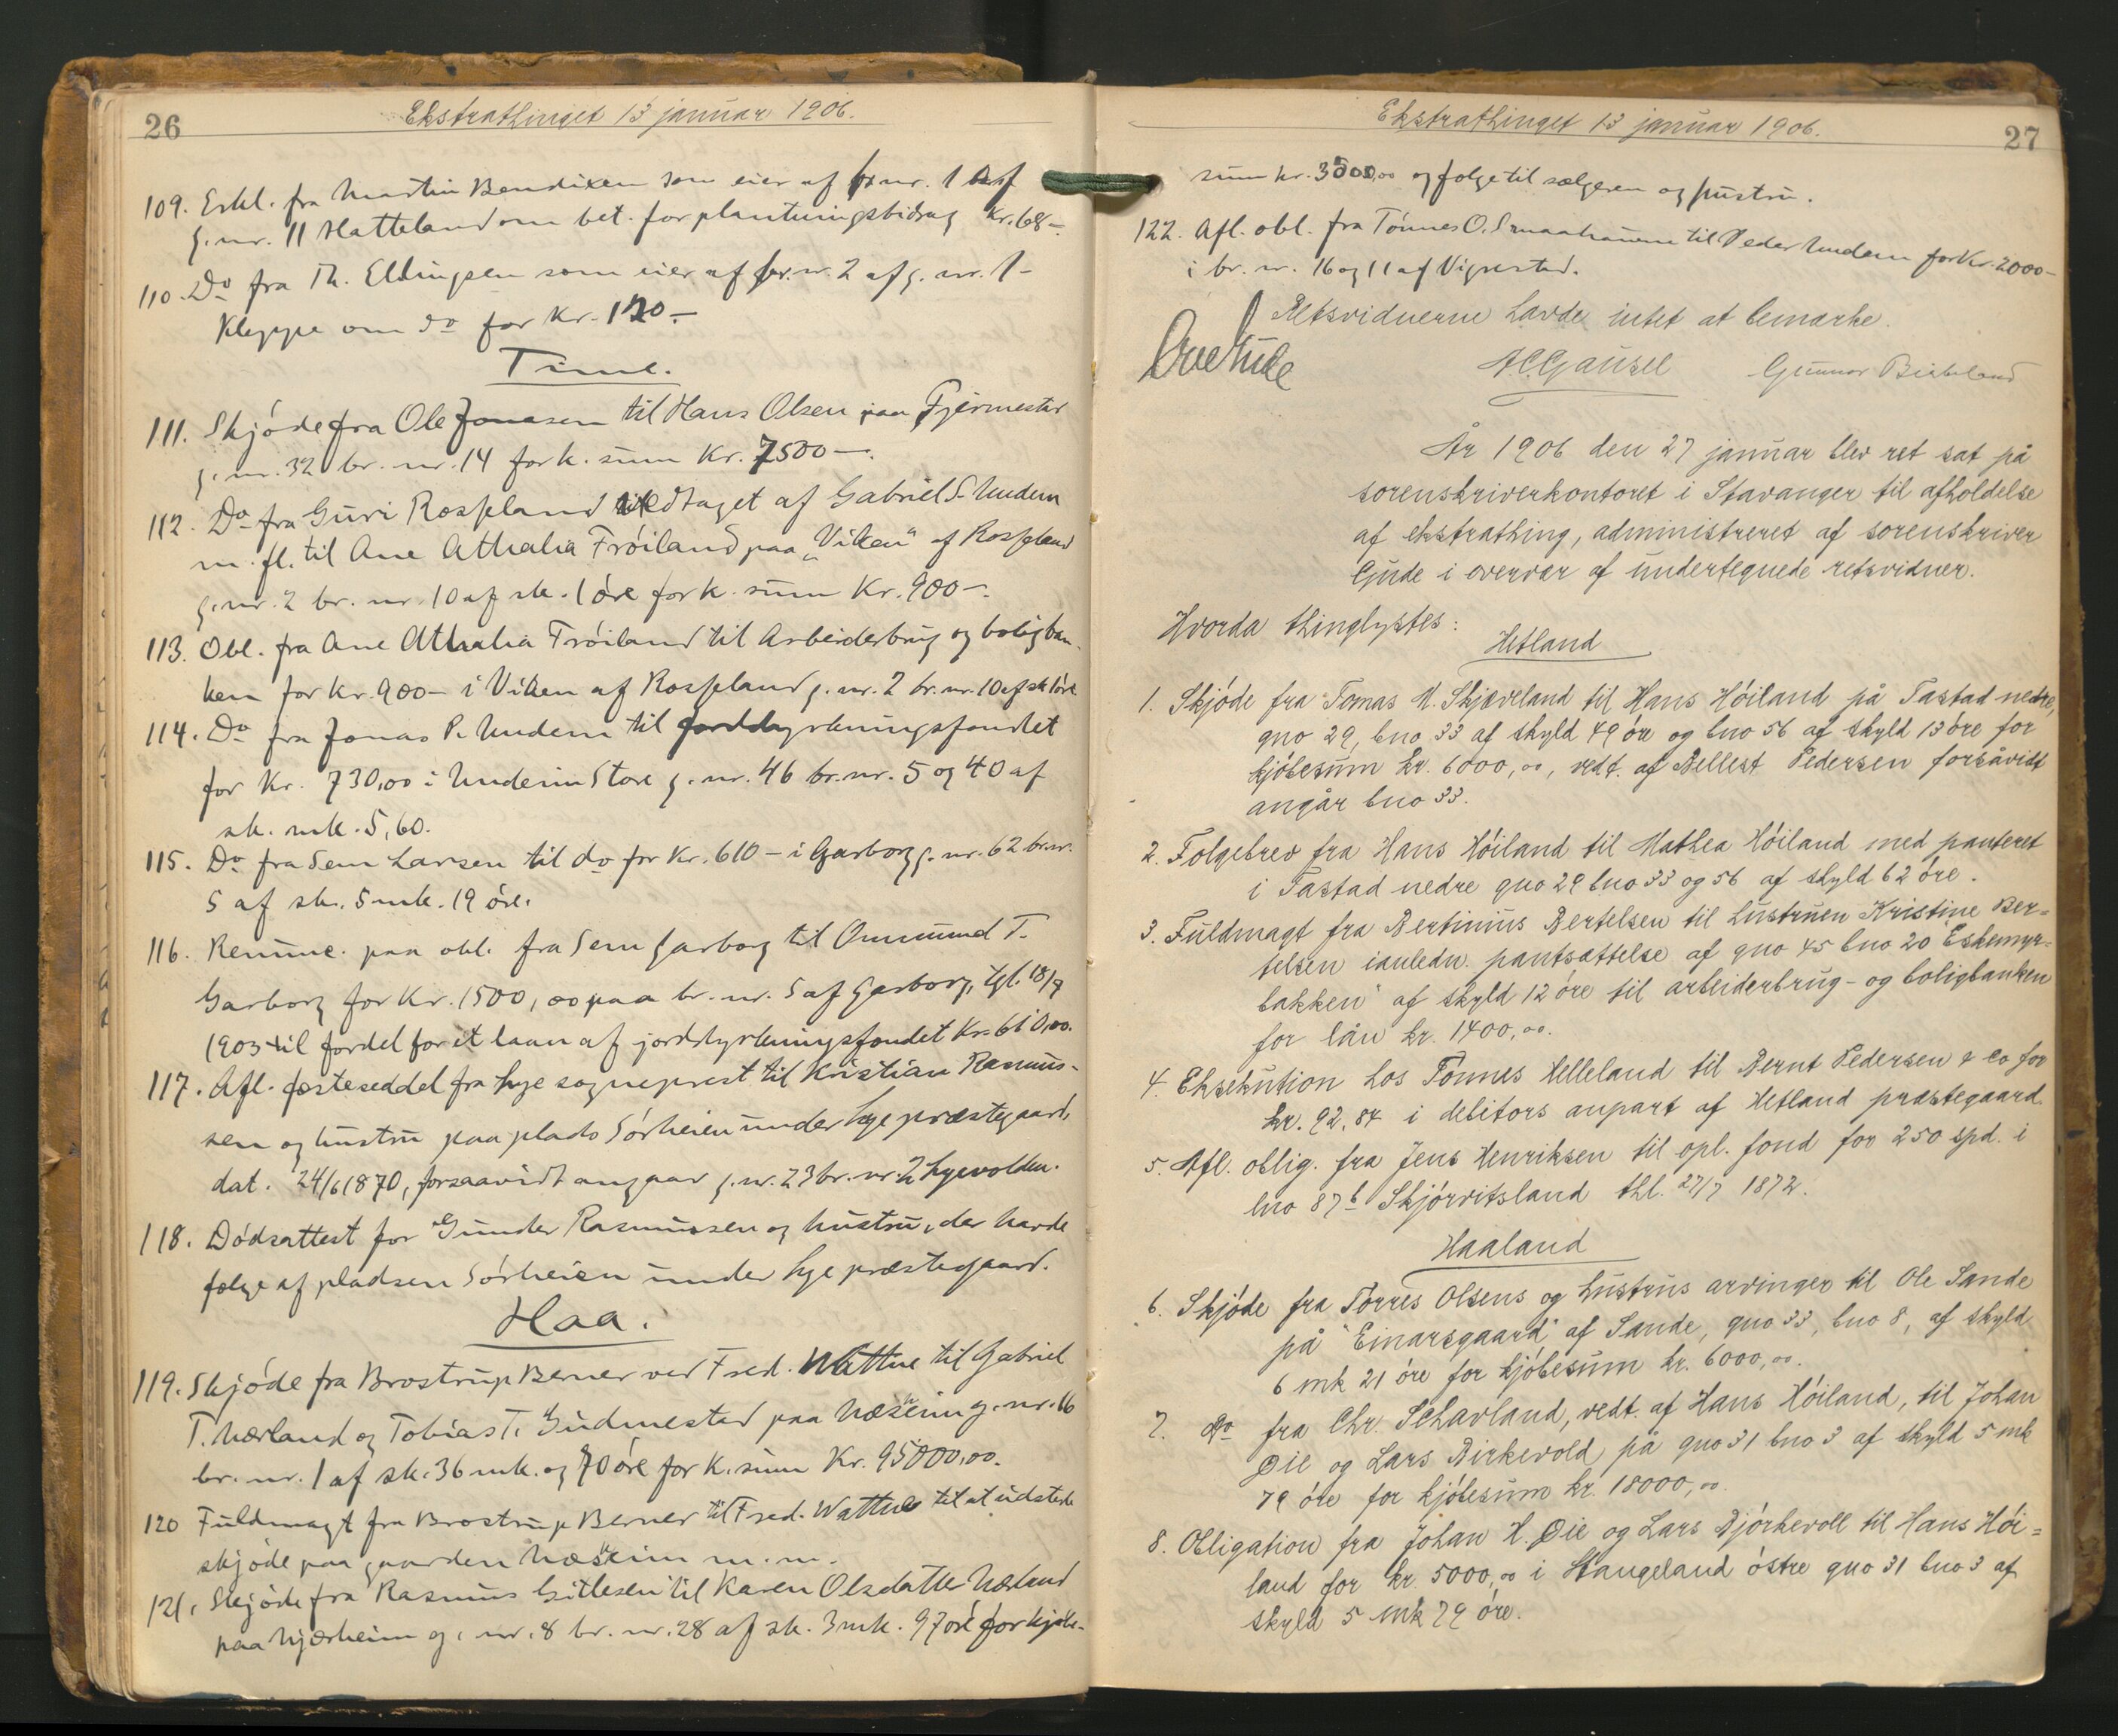 26
Ekstrathinget 13 januar 1906.
109. Erkl. fra Martin Bendixen som eier af br. nr. 1 af
g. nr. 11 Hatteland om bet. for plantningsbidrag Kr. 68 -.
110. Do fra Th. Ellingsen som eier af br. nr. 2 af g. nr. 1 -
Kleppe om do for Kr.
Time.
111. Skjøde fra Ole Jonasen til Hans Olsen paa Fjermestad
g. nr. 32 br. nr. 14 for k. sum Kr. 7500 -.
112. Do fra Guri Rosseland vedtaget af Gabriel S. Undem
m. fl. til Ane Athalia Frøiland paa "Viken" af Rosseland
g. nr. 2 br. nr. 10 af sk. 1 øre for k. sum Kr. 900 -.
113. Obl. fra Ane Athalia Frøiland til Arbeiderbrug og boligban-
ken for Kr. 900 - i Viken af Rosseland g. nr. 2 br. nr. 10 af sk 1 øre
114. Do fra Jonas P. Undem til jorddyrkningsfondet
for Kr. 730,00 i Undeim Store g. nr. 46 br. nr. 5 og 40 af
sk. mk. 5,60.
115. Do fra Sem Larsen til do for Kr. 610 - i Garborg g. nr. 62 br. nr.
5 af sk. 5 mk. 19 øre.
116. Renunc. paa obl. fra Sem Garborg til Ommund T.
Garborg for Kr. 1500,00 paa br. nr. 5 af Garborg, tgl. 18/7
1903 til fordel for et laan af jorddyrkningsfondet Kr. 610,00.
117. Afl. fæsteseddel fra Lye sogneprest til Kristian Rasmus-
sen og hustru paa plads Sørheien under Lye præstegaard,
dat. 24/6 1870, forsaavidt angaar g. nr. 23 br. nr. 2 Lyevolden.
118. Dødsattest for Gunder Rasmussen og hustru, der havde
følge af pladsen Sørheien under Lye præstegaard.
Haa.
119. Skjøde fra Brostrup Berner ved Fred. Wattne til Gabriel
T. Nærland og Tobias T. Gudmestad paa Næsheim g. nr. 16
br. nr. 1 af sk. 36 mk. og 70 øre for k. sum Kr. 95000,00.
120 Fuldmagt fra Brostrup Berner til Fred. Wattne til at udstede
skjøde paa gaarden Næsheim m. m.
121. Skjøde fra Rasmus Gitlesen til Karen Olsdatter Næland
paa Njærheim g. nr. 8 br. nr. 28 af sk. 3 mk. 97 øre for kjøbe-
Ekstrathinget 13 januar 1906.
27
sum kr. 3500,00 og følge til sælgeren og hustru.
122. Afl. obl. fra Tønnes O. Smaahaunene til Peder Undem for Kr. 2000 -
i br. nr. 16 og 11 af Vigrestad.
Retsvidnerne havde intet at bemærke.
Ove Gude
A. C. Gausel
Gunnar Birkeland
År 1906 den 27 januar blev ret sat på
sorenskriverkontoret i Stavanger til afholdelse
af ekstrathing, administreret af sorenskriver
Gude i overvær af undertegnede retsvidner.
Hvorda thinglystes:
Hetland
1. Skjøde fra Tomas M. Skjæveland til Hans Høiland på Tastad nedre,
gno 29, bno 33 af skyld 49 øre og bno 56 af skyld 13 øre for
kjøbesum kr. 6000,00, vedt. af Bellest Pedersen forsåvidt
angår bno 33.
2. Følgebrev fra Hans Høiland til Mathea Høiland med panteret
i Tastad nedre gno 29 bno 33 og 56 af skyld 62 øre.
3. Fuldmagt fra Bertinius Bertelsen til hustruen Kristine Ber=
telsen ianledn. pantsættelse af gno 45 bno 20 "Eskemyr=
bakken" af skyld 12 øre til arbeiderbrug- og boligbanken
for lån kr. 1400,00.
4. Eksekution hos Tønnes Helleland til Bernt Pedersen & Co for
kr. 92,84 i debitors anpart af Hetland præstegaard.
5. Afl. oblig. fra Jens Henriksen til opl. fond for 250 spd. i
lno 87 b Skjørvitsland thl. 27/7 1872.
Haaland
6. Skjøde fra Torres Olsens og hustrus arvinger til Ole Sande
på "Einarsgaard" af Sande, gno 33, bno 8, af skyld
6 mk 21 øre for kjøbesum kr. 6000,00.
7. do fra Chr. Schavland, vedt. af Hans Høiland, til Johan
Øie og Lars Birkevold på gno 31 bno 3 af skyld 5 mk
79 øre for kjøbesum kr. 18000,00.
8. Obligation fra Johan H. Øie og Lars Bjørkevoll til Hans Høi=
land for kr. 5000,00 i Stangeland østre gno 31 bno 3 af
skyld 5 mk 79 øre.